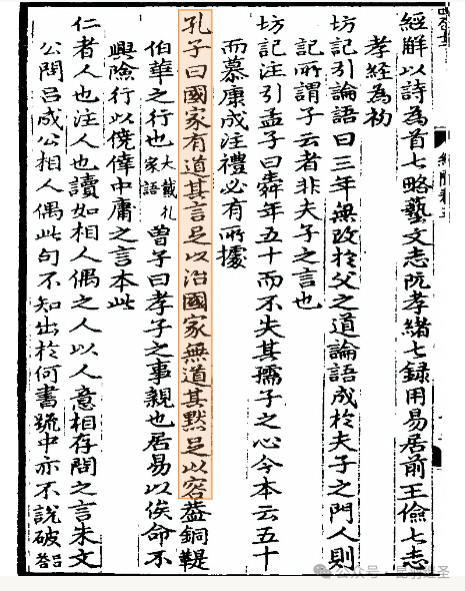 經解以詩為首七略藝文志阮孝緒七録用易居前王儉七志
孝經為初
坊記引論語曰三年無改於父之道論語成於夫子之門人則
記所謂子云者非夫子之言也
坊記注引孟子曰舜年五十而不失其孺子之心今本云五十
而慕康成注禮必有所據
孔子曰國家有道其言足以治國家無道其默足以容葢銅鞮
伯華之行也大戴礼家語曾子曰孝子之事親也居易以俟命不
興險行以僥倖中庸之言本此
仁者人也注人也讀如相人偶之人以人意相存問之言朱文
公問吕成公相人偶此句不知出於何書疏中亦不說破吕答
公众号